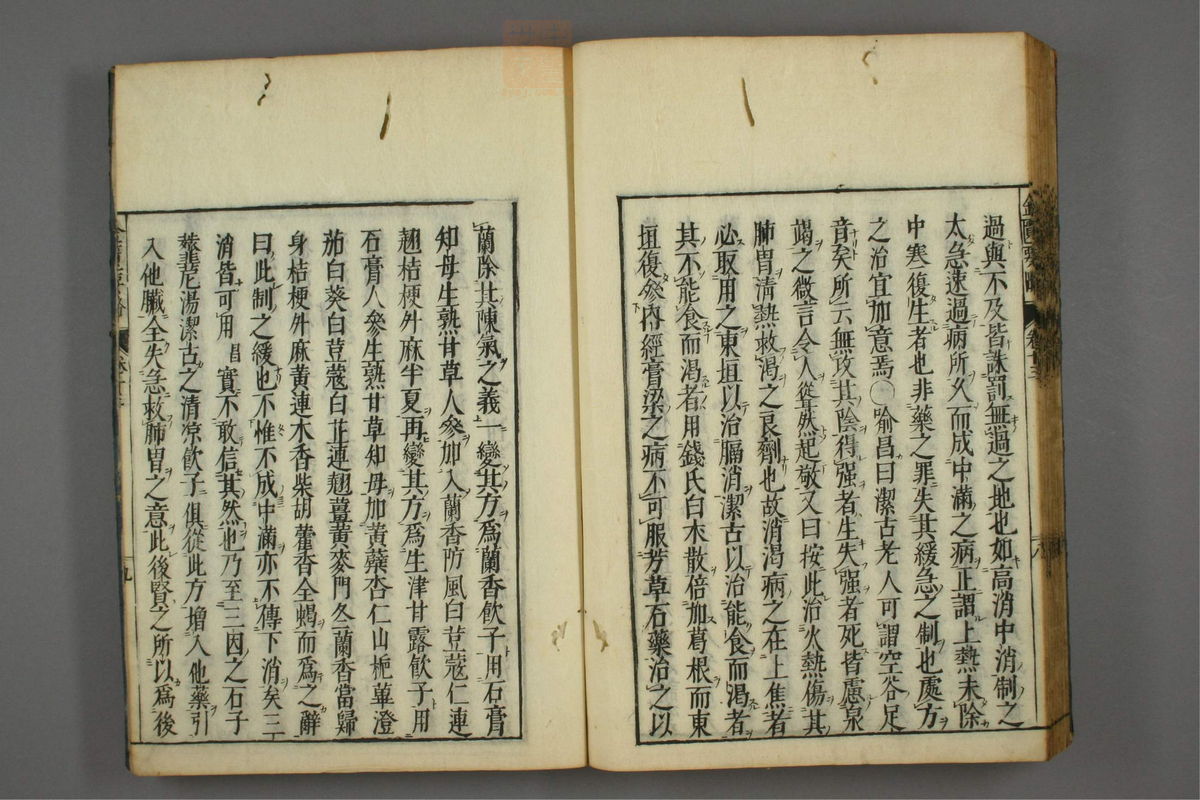 過與不及皆誅罰無過之地也如高消中消制之
太急速過病所久而成中滿之病正謂上熱未除
中寒復生者也非藥之罪失其緩急之制也處方
之治宜加意焉○喻昌曰潔古老人可謂空谷足
音矣所云無攻其陰得强者生失强者死皆慮泉
竭之微言令人聳然起敬又曰按此治火熱傷其
肺胃清熱救渴之良劑也故消渴病之在上焦者
必取用之東垣以治膈消潔古以治能食而渴者
其不能食而渴者用錢氏白朮散倍加葛根而東
垣復參內經膏梁之病不可服芳草石藥治之以
蘭除其陳氣之義一變其方爲蘭香飮子用石膏
知母生熟甘草人參加入蘭香防風白荳蔻仁連
翹桔梗外麻半夏再變其方爲生津甘露飮子用
石膏人參生熟甘草知母加黃蘗杏仁山梔蓽澄
茄白葵白荳蔻白芷連翹薑黃麥門冬蘭香當歸
身桔梗外麻黃連木香柴胡藿香全蝎而爲之辭
曰此制之緩也不惟不成中滿亦不傳下消矣三
消皆可用昌實不敢信其然也乃至三因之石子
薺苨湯潔古之清凉飮子俱從此方增入他藥引
入他臟全失急救肺胃之意此後賢之所以爲後